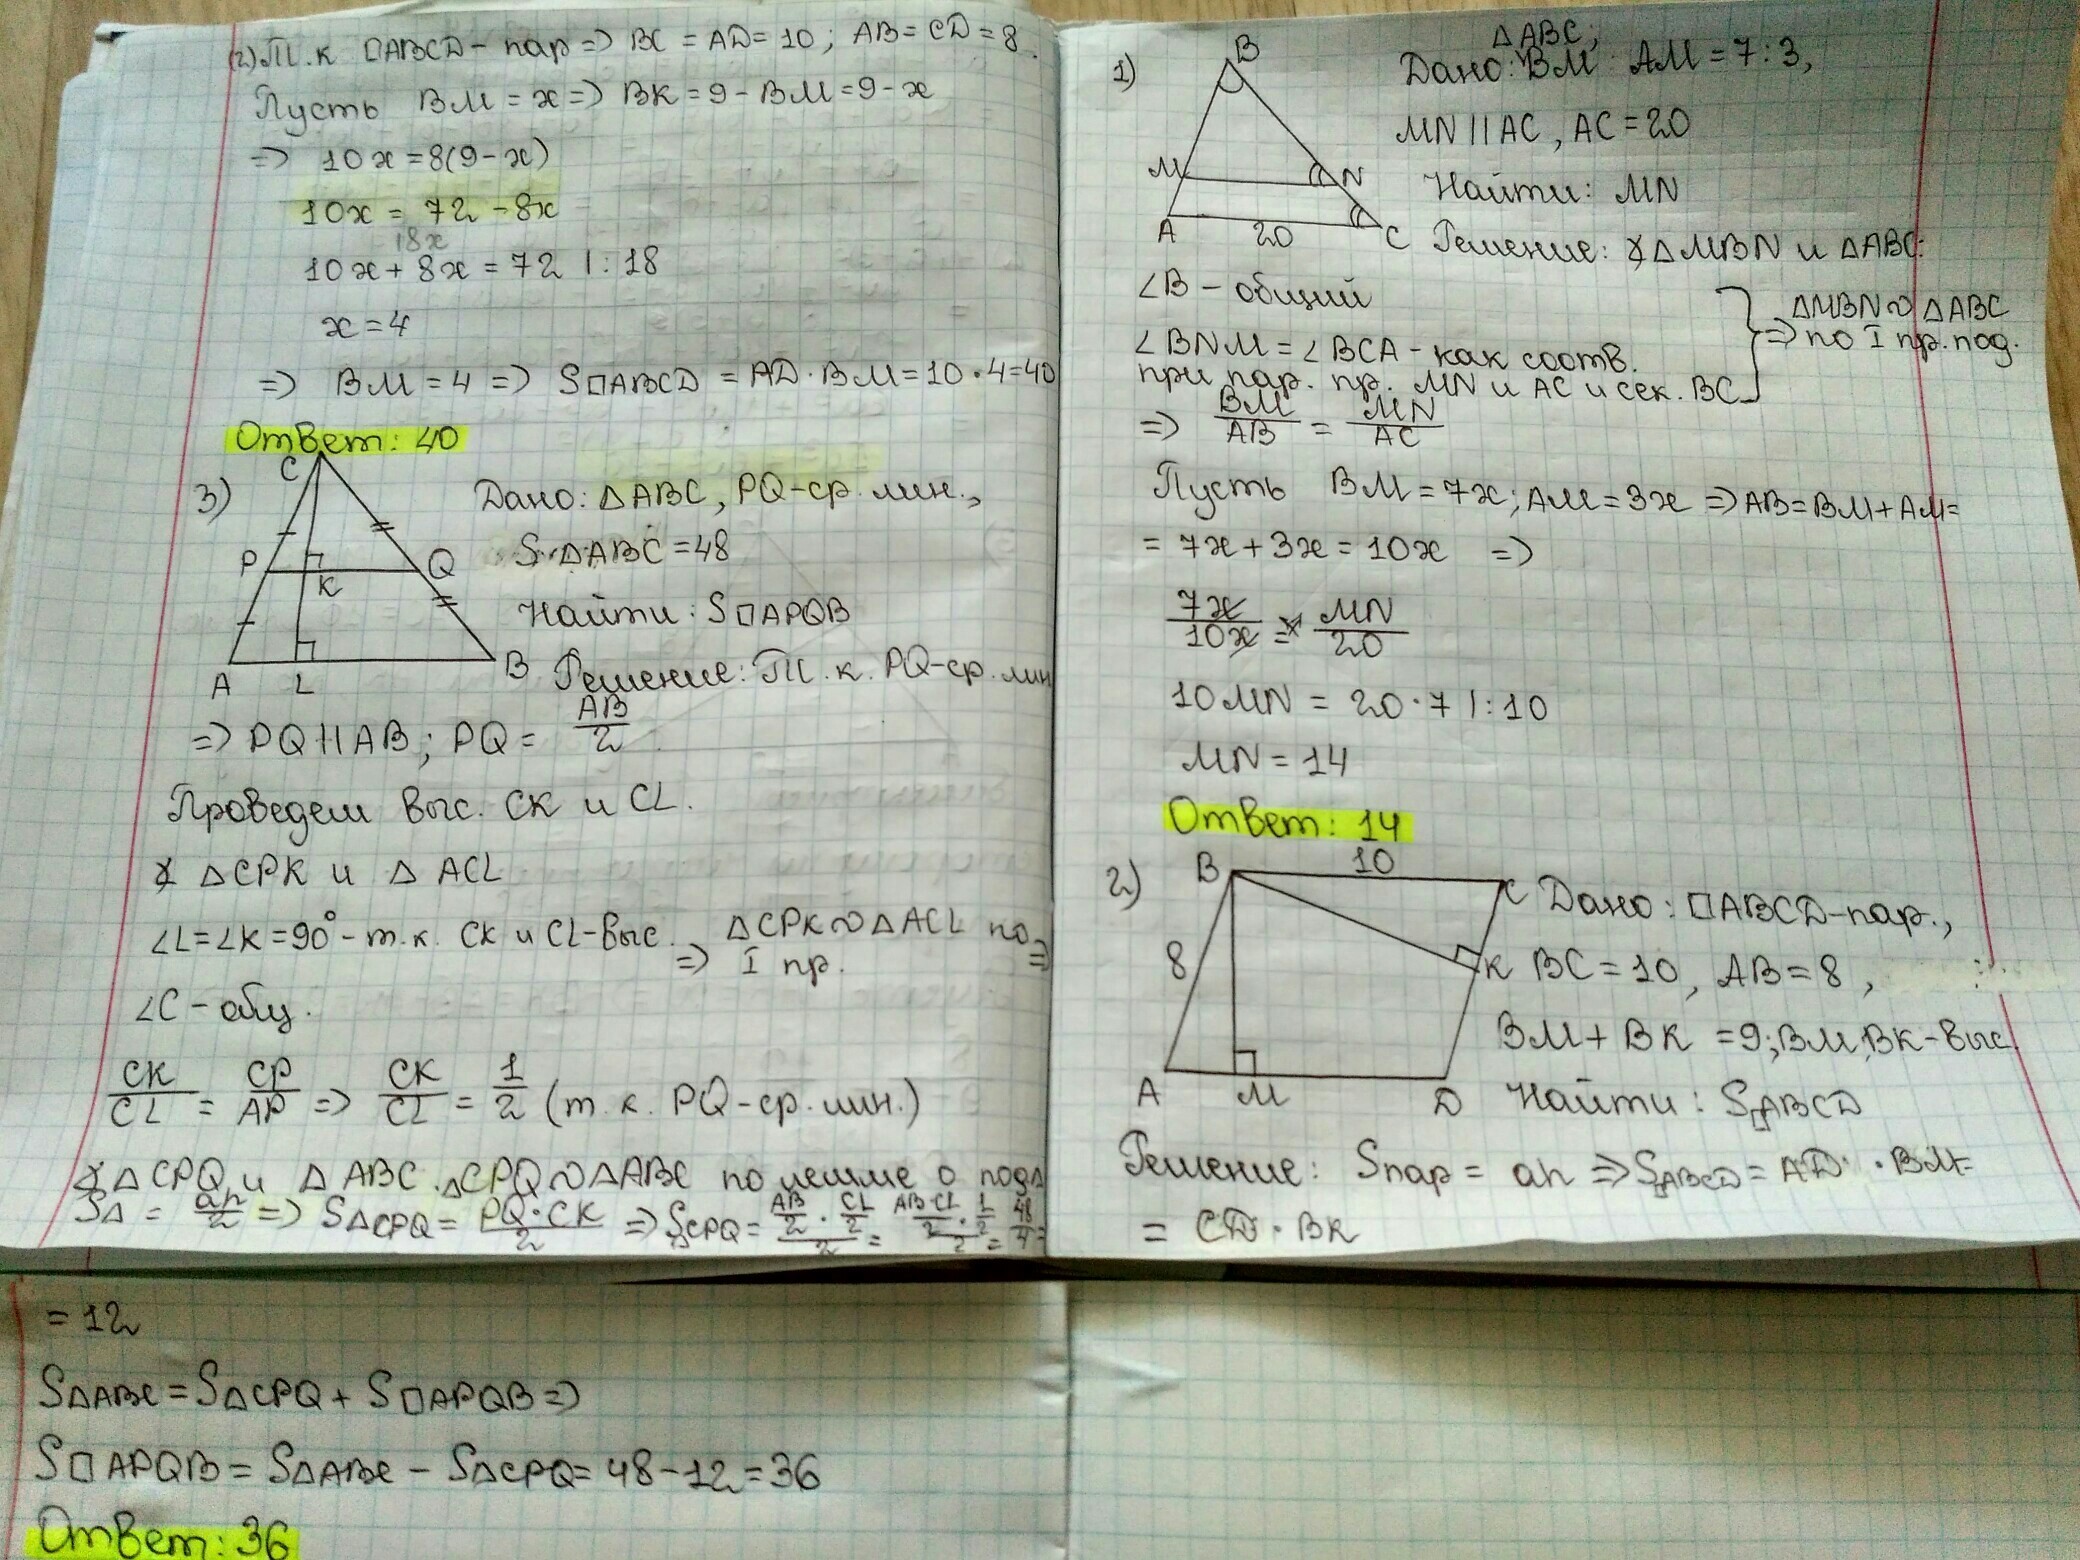 1)
B
M
N
A
20
C
△ABC;
Дано: BM : AM = 7:3,
MN || AC, AC = 20
Найти: MN
Решение: △MBN и △ABC:
∠B – общий
∠BNM = ∠BCA – как соотв.
при пар. пр. MN и AC и сек. BC
△MBN ∾ △ABC
=> по I пр. под.
=> BM/AB = MN/AC
Пусть BM = 7x; AM = 3x => AB = BM + AM =
= 7x + 3x = 10x =>
7x/10x = MN/20
10MN = 20·7 |:10
MN = 14
Ответ: 14
2)
B
10
C
8
K
A
M
D
Дано: □ABCD – пар.,
BC = 10, AB = 8,
BM + BK = 9; BM, BK – выс.
Найти: S□ABCD
Решение: Sпар = ah => S□ABCD = AD · BM =
= CD · BK
(2) Т.к □ABCD – пар => BC = AD = 10; AB = CD = 8.
Пусть BM = x => BK = 9 – BM = 9 – x
=> 10x = 8(9 – x)
10x = 72 – 8x
18x
10x + 8x = 72 |:18
x = 4
=> BM = 4 => S□ABCD = AD · BM = 10 · 4 = 40
Ответ: 40
3)
C
P
K
Q
A
L
B
Дано: △ABC, PQ – ср. лин.,
S△ABC = 48
Найти: S□APQB
Решение: Т.к. PQ – ср. лин
=> PQ || AB; PQ = AB/2
Проведем выс. CK и CL.
△CPK и △ACL
∠L = ∠K = 90° – т.к. CK и CL – выс. => △CPK ∾ △ACL по I пр. =>
∠C – общ.
CK/CL = CP/AP => CK/CL = 1/2 (т.к. PQ – ср. лин.)
△CPQ и △ABC. △CPQ ∾ △ABC по лемме о под
S△ = ah/2 => S△CPQ = PQ·CK/2 => S△CPQ = AB/2 · CL/2 / 2 = AB·CL/2 · 1/2 / 2 = 48/4 =
= 12
S△ABC = S△CPQ + S□APQB =>
S□APQB = S△ABC – S△CPQ = 48 – 12 = 36
Ответ: 36